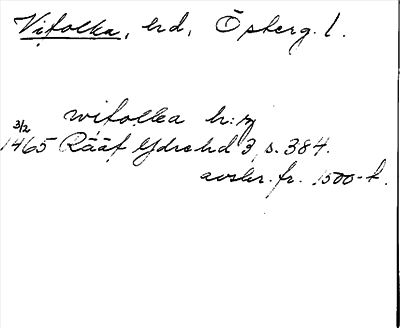 Vifolka, hrd, Österg. l.
wifolka h:z
3/2
1465 Rääf Ydrehd 3, s. 384.
avskr. fr. 1500-t.